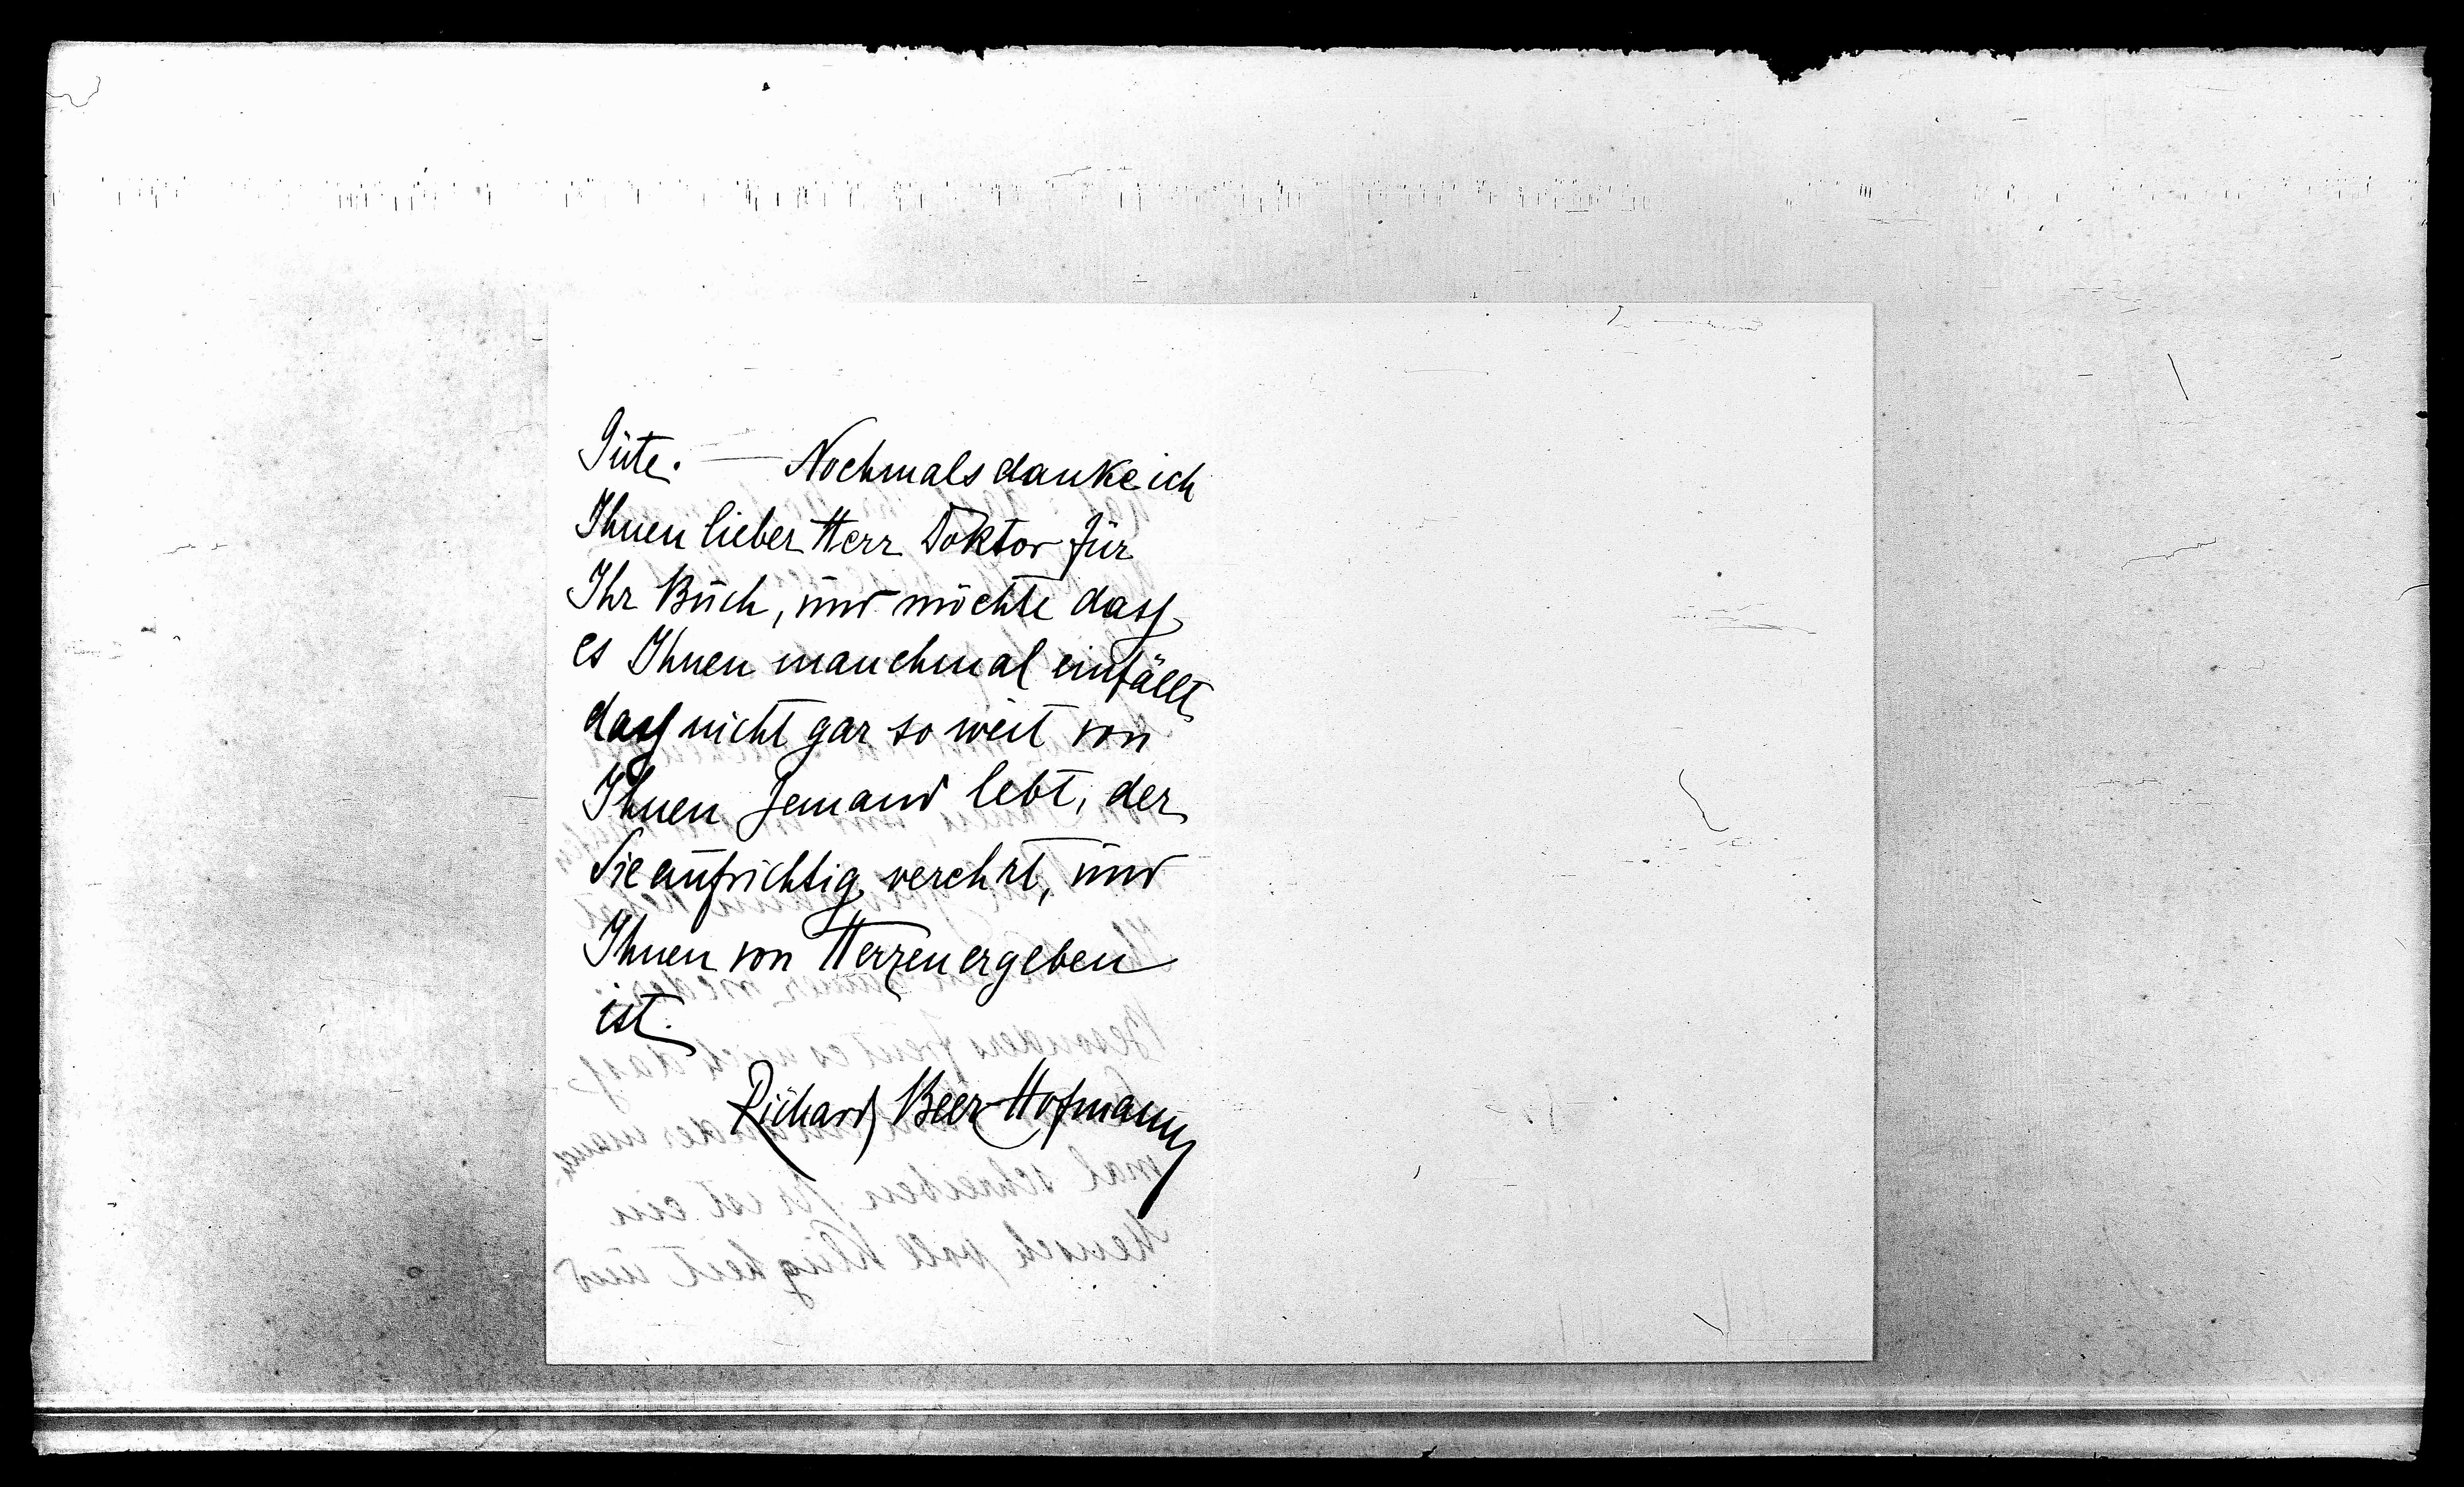 Güte. — Nochmals danke ich
Ihnen lieber Herr Doktor für
Ihr Buch, und möchte dass
es Ihnen manchmal einfällt
dass nicht gar so weit von
Ihnen Jemand lebt, der
Sie aufrichtig verehrt, und
Ihnen von Herzen ergeben
ist.
Richard Beer-Hofmann